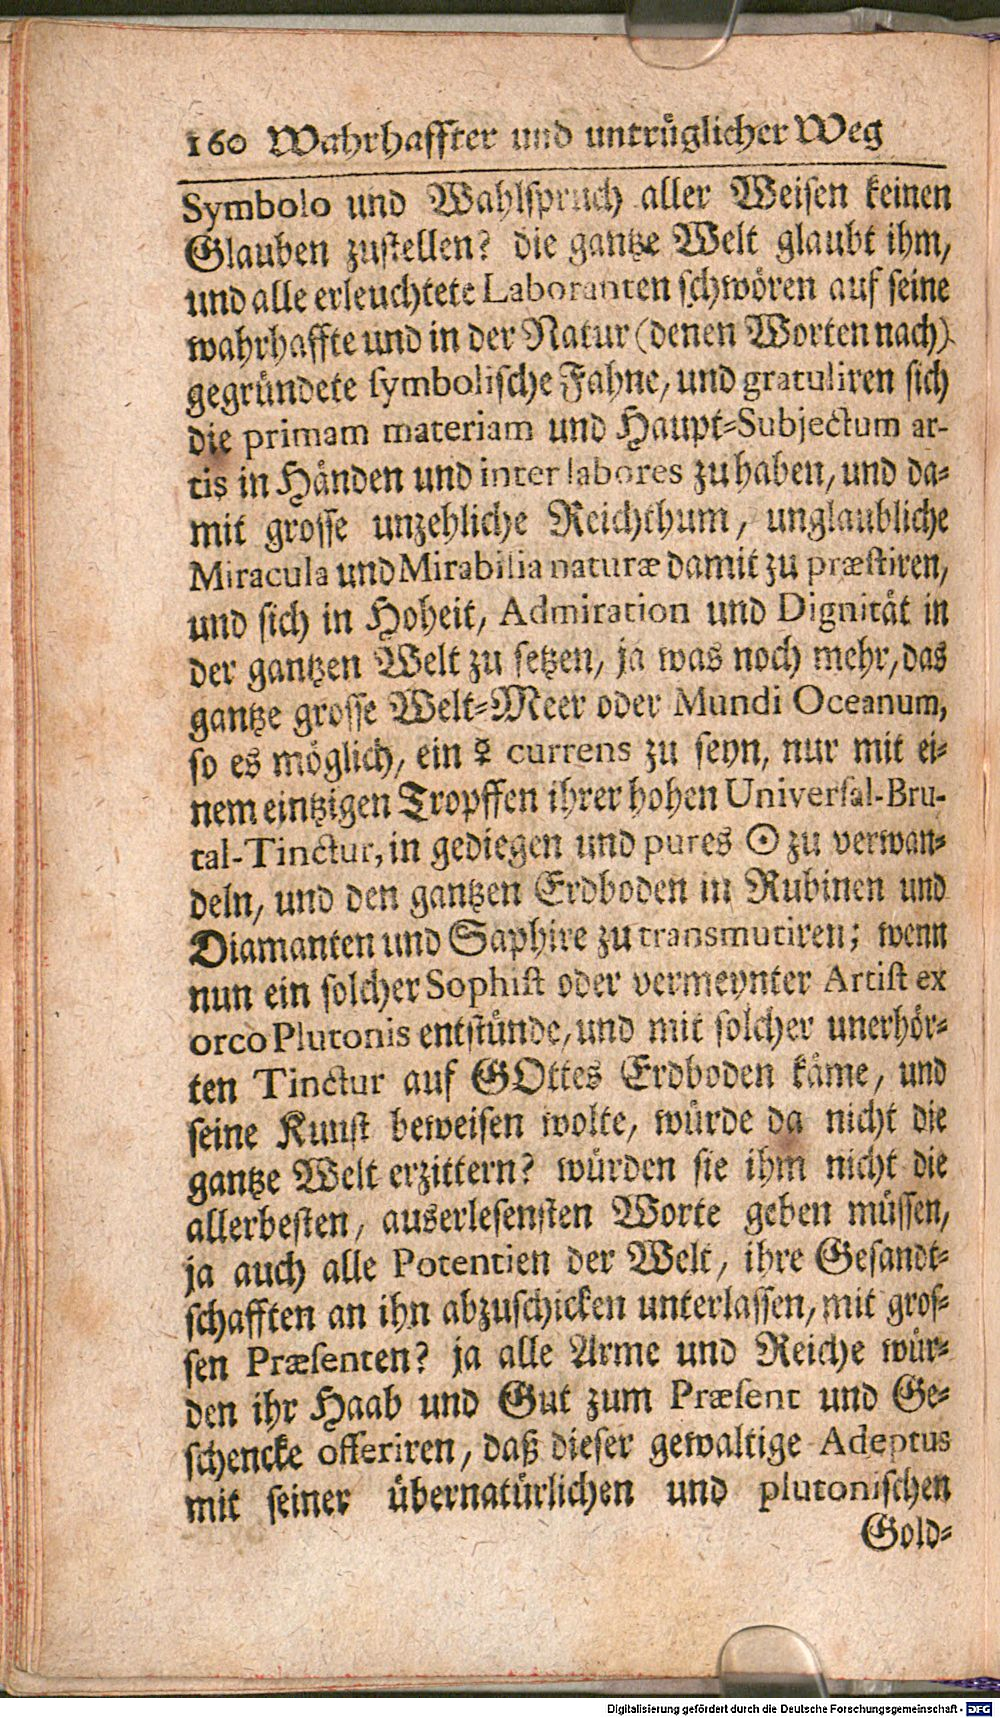 160 Wahrhaffter und untrüglicher Weg
Symbolo und Wahlspruch aller Weisen keinen
Glauben zustellen? die gantze Welt glaubt ihm,
und alle erleuchtete Laboranten schwören auf seine
wahrhaffte und in der Natur (denen Worten nach)
gegründete symbolische Fahne, und gratuliren sich
die primam materiam und Haupt-Subjectum ar-
tis in Händen und inter labores zu haben, und da-
mit grosse unzehliche Reichthum, unglaubliche
Miracula und Mirabilia naturæ damit zu præstiren,
und sich in Hoheit, Admiration und Dignität in
der gantzen Welt zu setzen, ja was noch mehr, das
gantze grosse Welt-Meer oder Mundi Oceanum,
so es möglich, ein ☿ currens zu seyn, nur mit ei-
nem eintzigen Tropffen ihrer hohen Universal-Bru-
tal-Tinctur, in gediegen und pures ☉ zu verwan-
deln, und den gantzen Erdboden in Rubinen und
Diamanten und Saphire zu transmutiren; wenn
nun ein solcher Sophist oder vermeynter Artist ex
orco Plutonis entstünde, und mit solcher unerhör-
ten Tinctur auf GOttes Erdboden käme, und
seine Kunst beweisen wolte, würde da nicht die
gantze Welt erzittern? würden sie ihm nicht die
allerbesten, auserlesensten Worte geben müssen,
ja auch alle Potentien der Welt, ihre Gesandt-
schafften an ihn abzuschicken unterlassen, mit gros-
sen Præsenten? ja alle Arme und Reiche wür-
den ihr Haab und Gut zum Præsent und Ge-
schencke offeriren, daß dieser gewaltige Adeptus
mit seiner übernatürlichen und plutonischen
Gold-
Digitalisierung gefördert durch die Deutsche Forschungsgemeinschaft - DFG